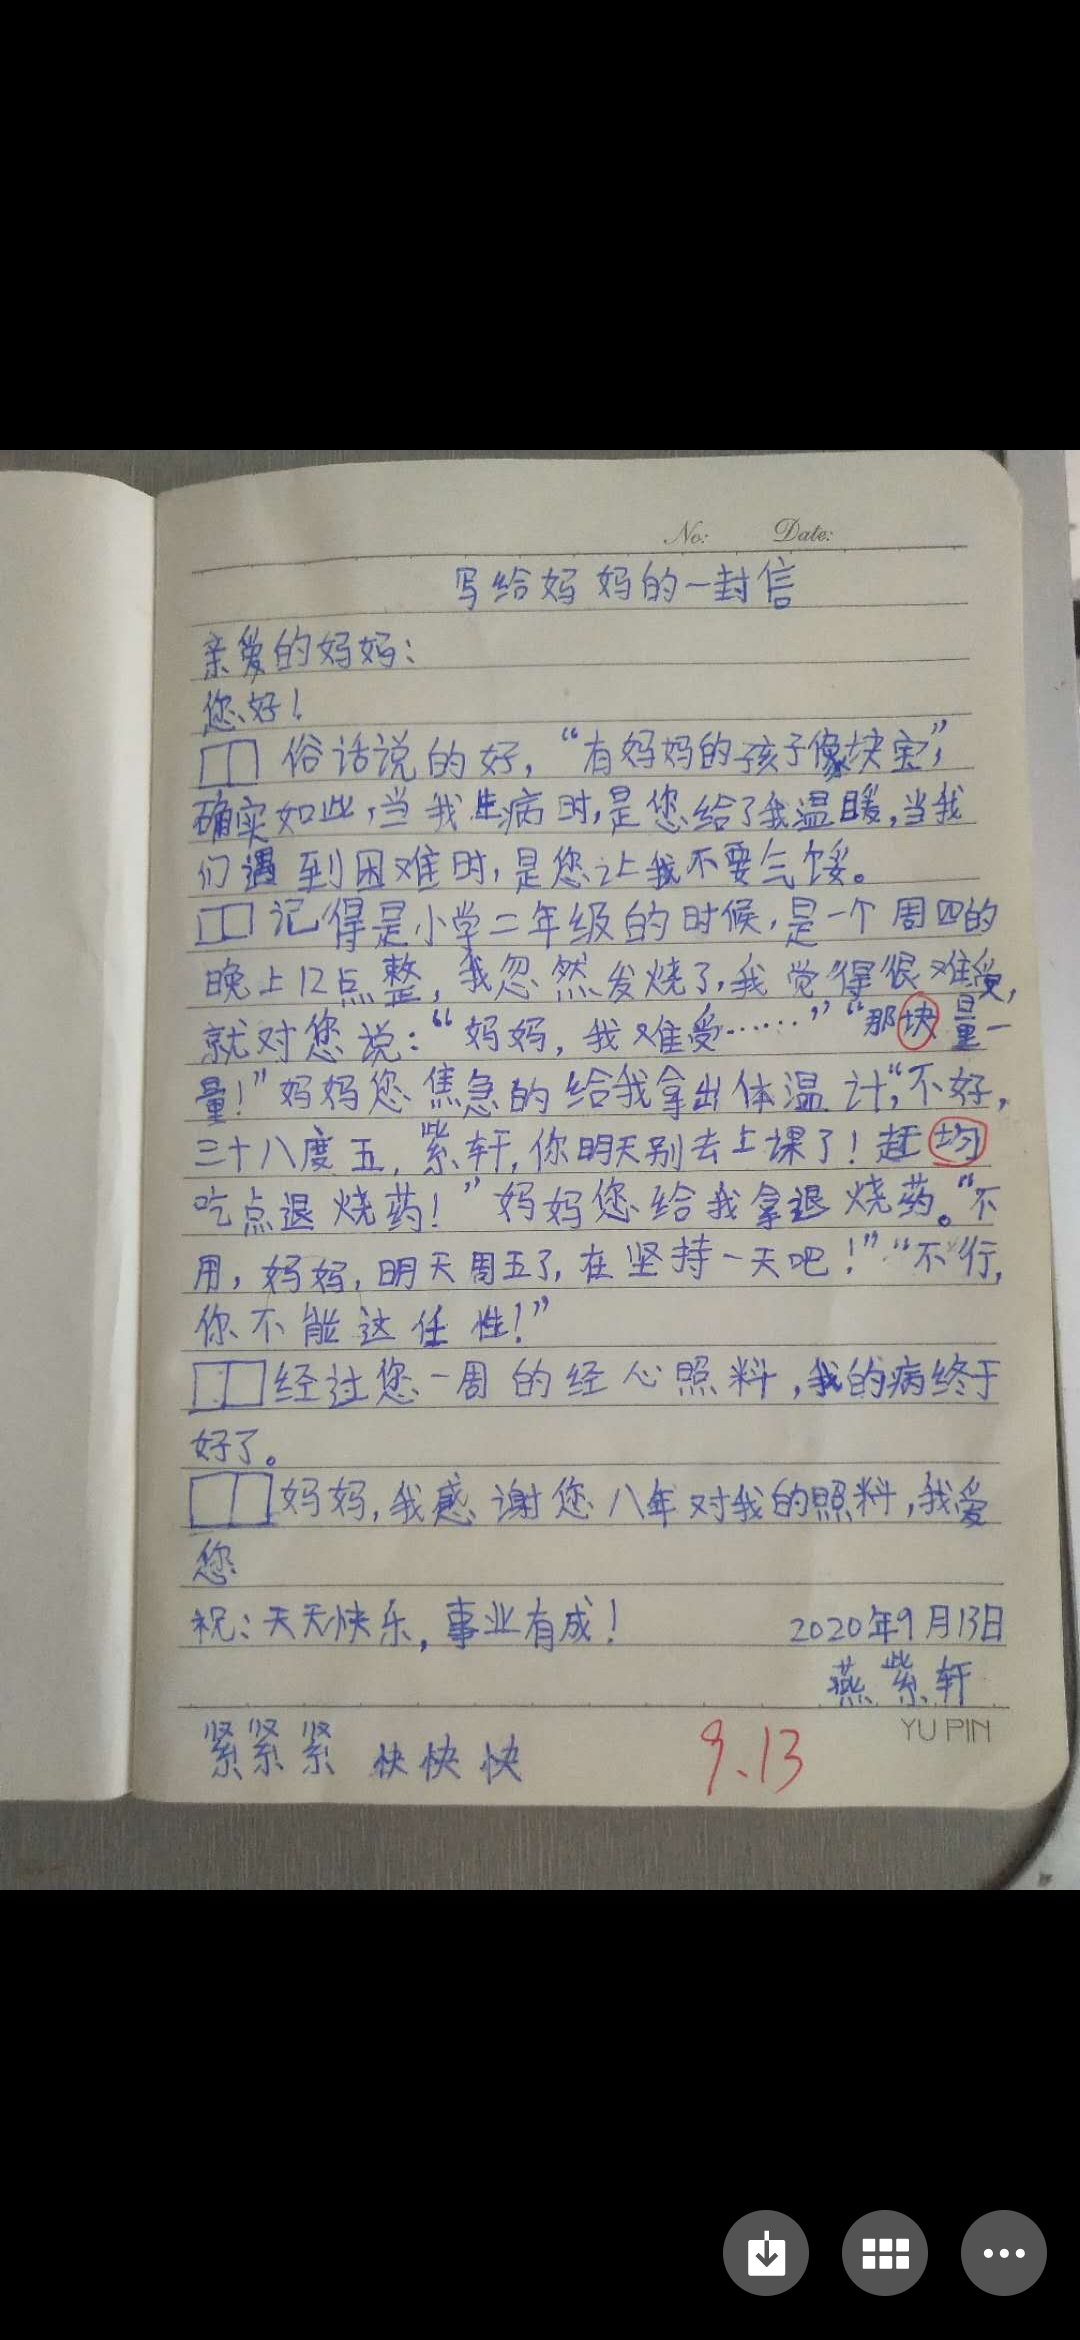 No: Date:
写给妈妈的一封信
亲爱的妈妈：
您好！
俗话说的好，“有妈妈的孩子像块宝”，
确实如此，当我生病时，是您给了我温暖，当我
们遇到困难时，是您让我不要气馁。
记得是小学二年级的时候，是一个周四的
晚上12点整，我忽然发烧了，我觉得很难受，
就对您说：“妈妈，我难受……”“那块量一
量！”妈妈您焦急的给我拿出体温计，“不好，
三十八度五，紫轩，你明天别去上课了！赶均
吃点退烧药！”妈妈您给我拿退烧药。“不
用，妈妈，明天周五了，在坚持一天吧！”“不行，
你不能这任性！”
经过您一周的经心照料，我的病终于
好了。
妈妈，我感谢您八年对我的照料，我爱
您
祝：天天快乐，事业有成！ 2020年9月13日
燕紫轩
YU PIN
紧紧紧 快快快 9.13